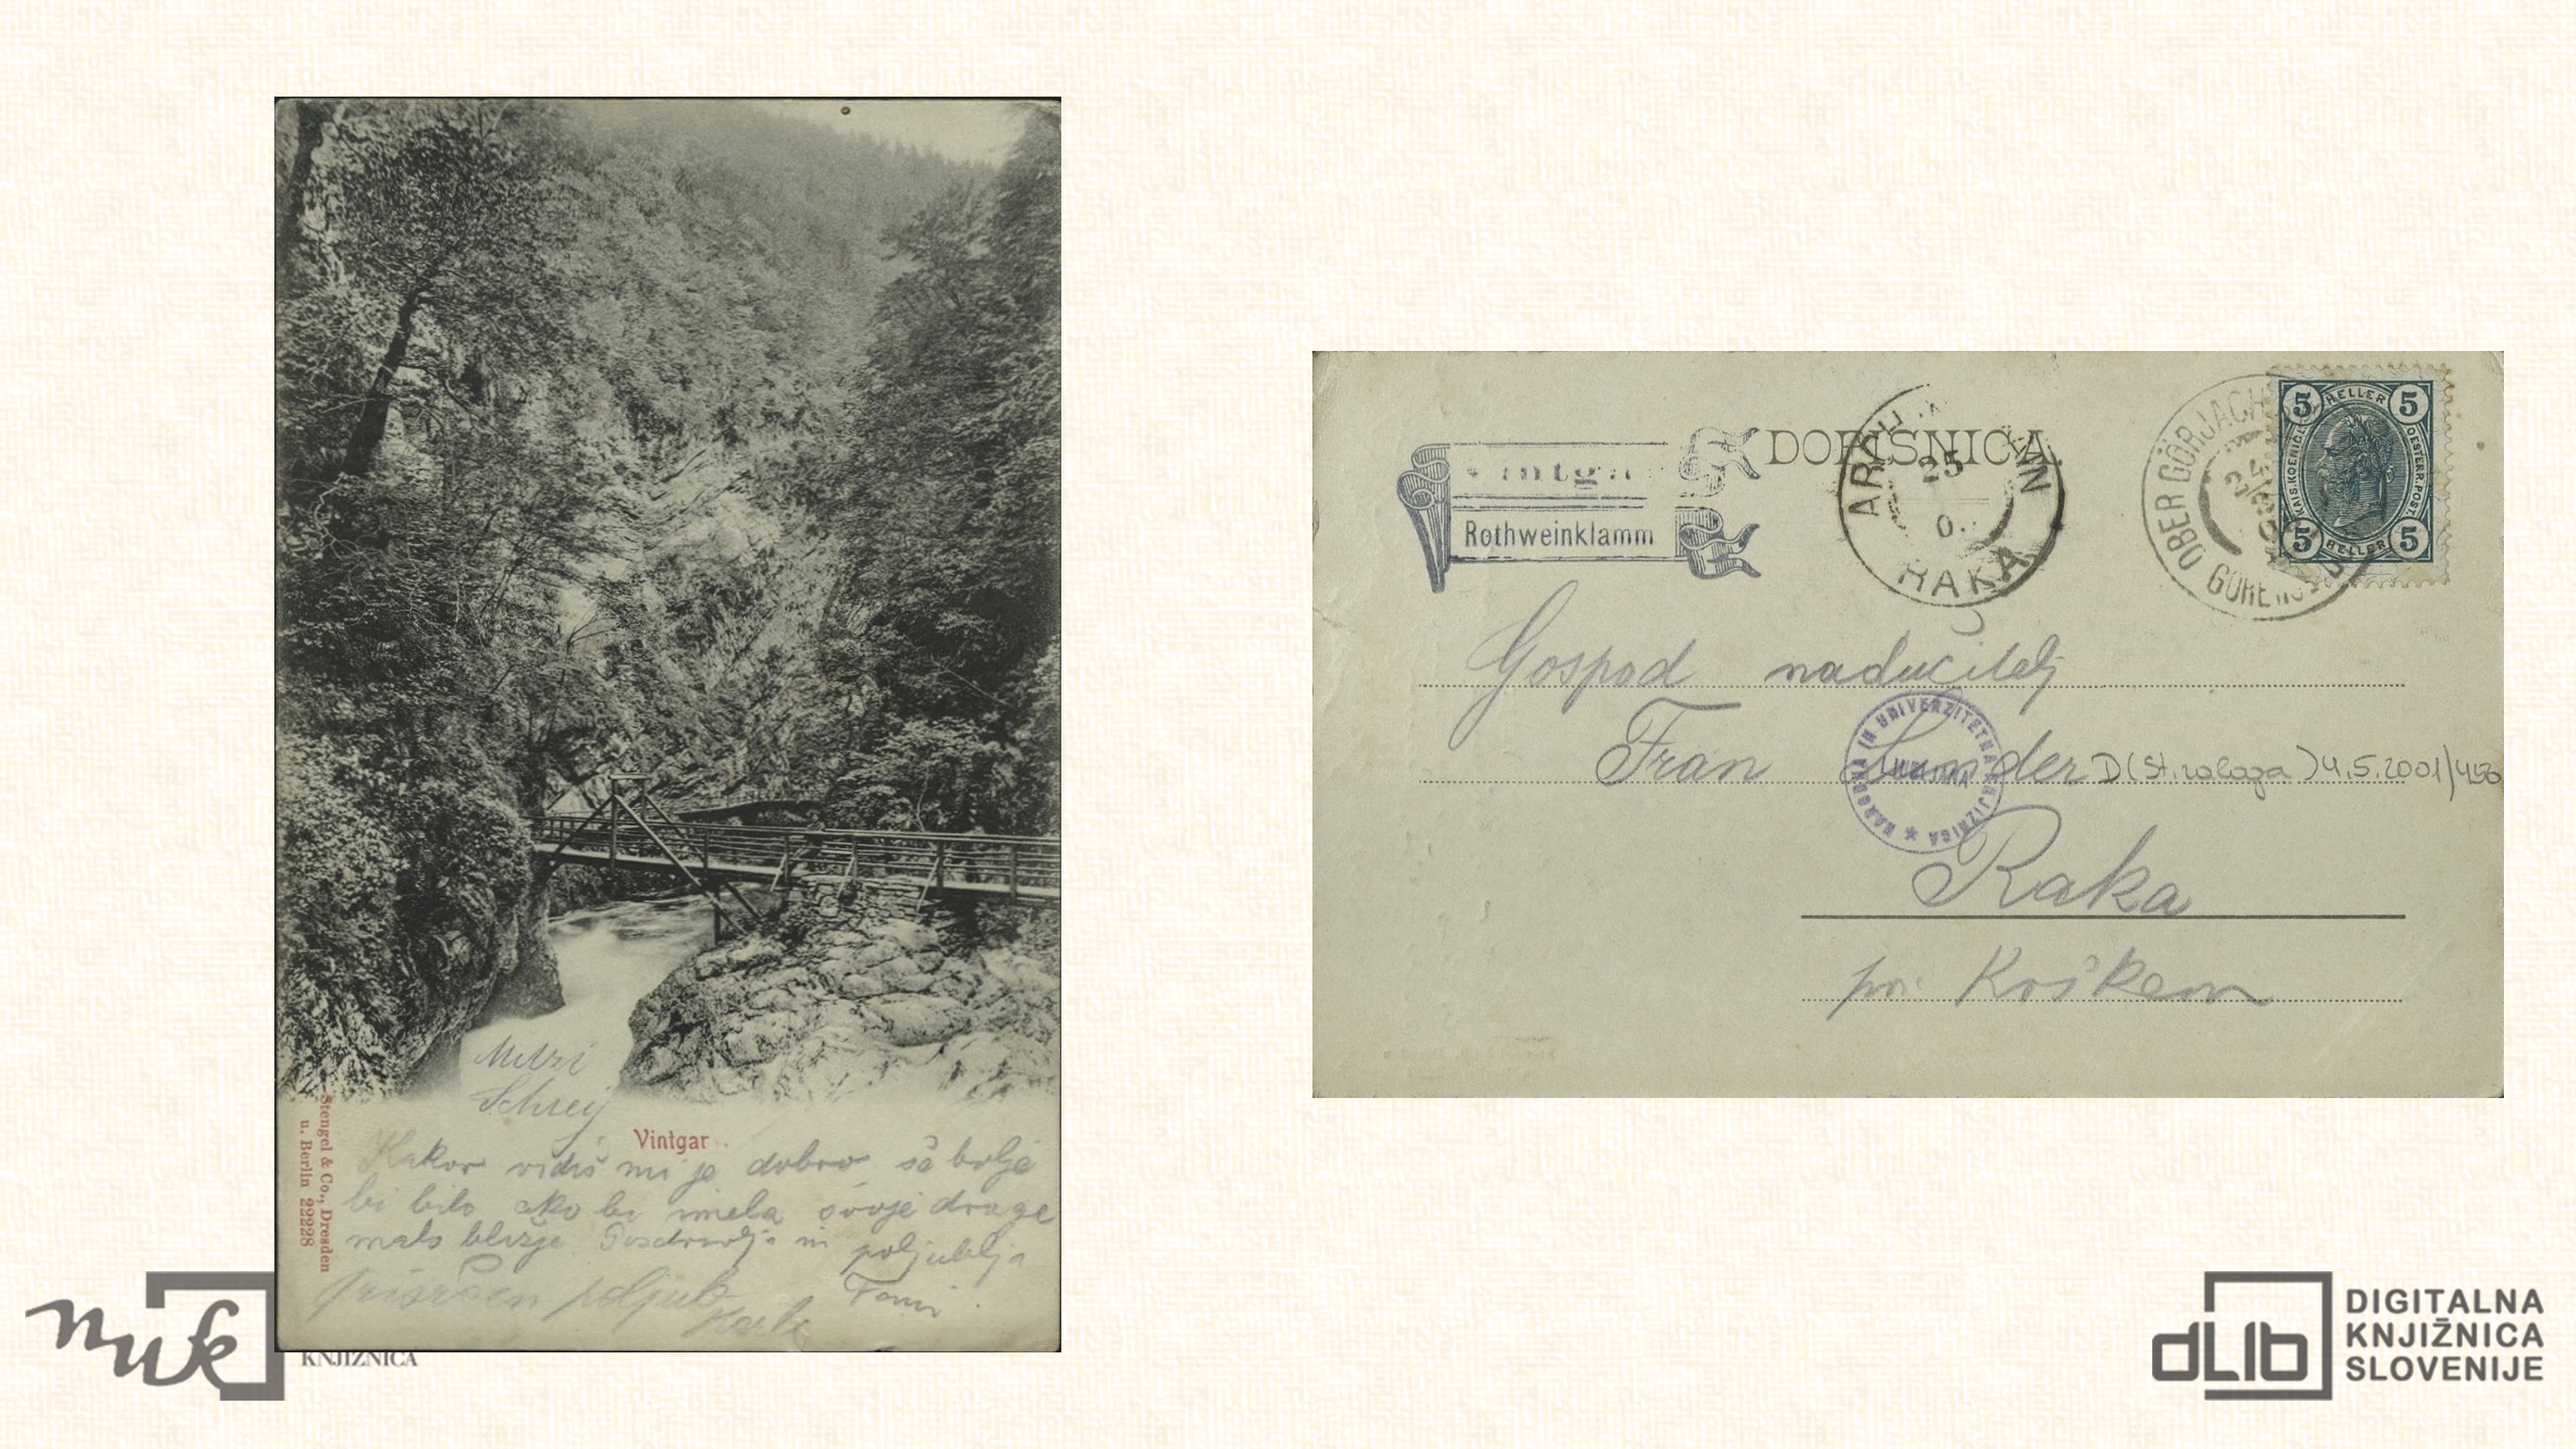 Mitzi
Schrey
Vintgar
Kakor vidiš mi je dobro, še bolje
bi bilo ako bi imela svoje drage
malo bližje. Pozdravlja in poljublja
Tomi
prisrčen poljub
Stengel & Co., Dresden
u. Berlin 22228
nuk
KNJIŽNICA
Vintgar
Rothweinklamm
DOPISNICA.
25
RAKA
OBER GÖRJACH
24
5 HELLER 5
KAIS. KOENIGL. OESTERR. POST.
5 HELLER 5
Gospod nadučitelj
Fran
D(st. zaloga) 4.5.2001/458
NARODNA IN UNIVERZITETNA KNJIŽNICA
LJUBLJANA
Raka
pri Krškem
dLib
DIGITALNA
KNJIŽNICA
SLOVENIJE